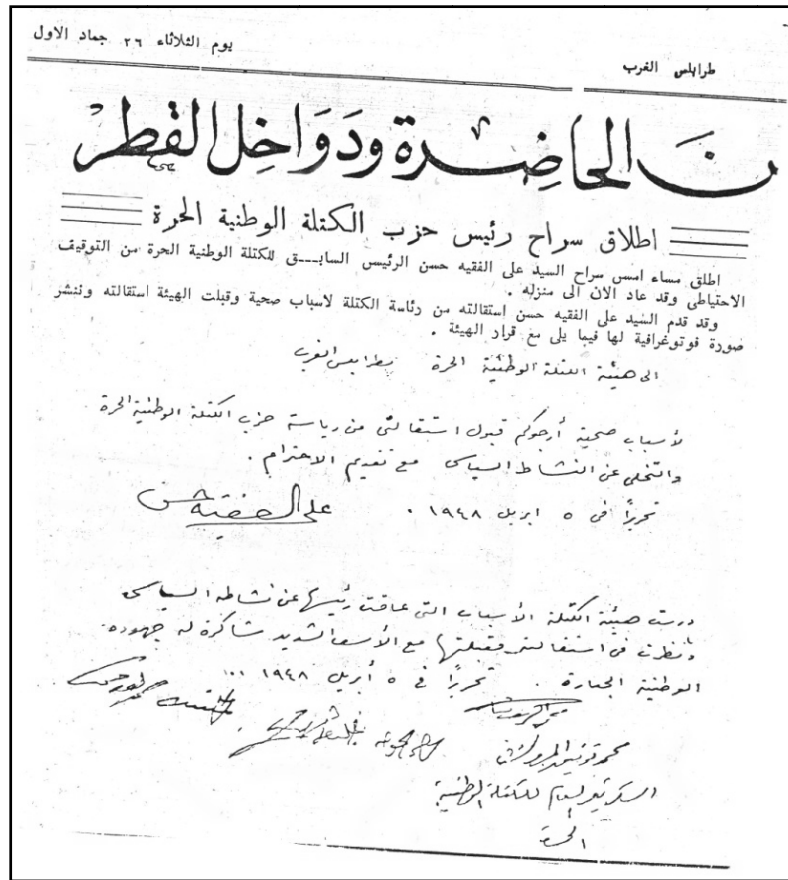 طرابلس الغرب
يوم الثلاثاء ٢٦ جماد الاول
ن الحاضرة ودواخل القطر
اطلاق سراح رئيس حزب الكتلة الوطنية الحرة
اطلق مساء امس سراح السيد على الفقيه حسن الرئيس السابـــق للكتلة الوطنية الحرة من التوقيف
الاحتياطى وقد عاد الان الى منزله .
وقد قدم السيد على الفقيه حسن استقالته من رئاسة الكتلة لاسباب صحية وقبلت الهيئة استقالته وننشر
صورة فوتوغرافية لها فيما يلى مع قرار الهيئة .
الى هيئة الكتلة الوطنية الحرة بطرابلس الغرب
لأسباب صحية أرجوكم قبول استقالتى من رياسة حزب الكتلة الوطنية الحرة
والتخلى عن النشاط السياسى مع تقديم الاحترام .
تحررًا فى ٥ ابريل ١٩٤٨ .
على الفقيه حسن
درست هيئة الكتلة الأسباب التى عاقت رئيسها عن نشاطه السياسى
ونظرت فى استقالته فقبلتها مع الأسف الشديد شاكرة له جهوده
الوطنية الجبارة . تحررًا فى ٥ أبريل ١٩٤٨ ...
محمد توفيق المبروك
السكرتير العام للكتلة الوطنية
الحرة